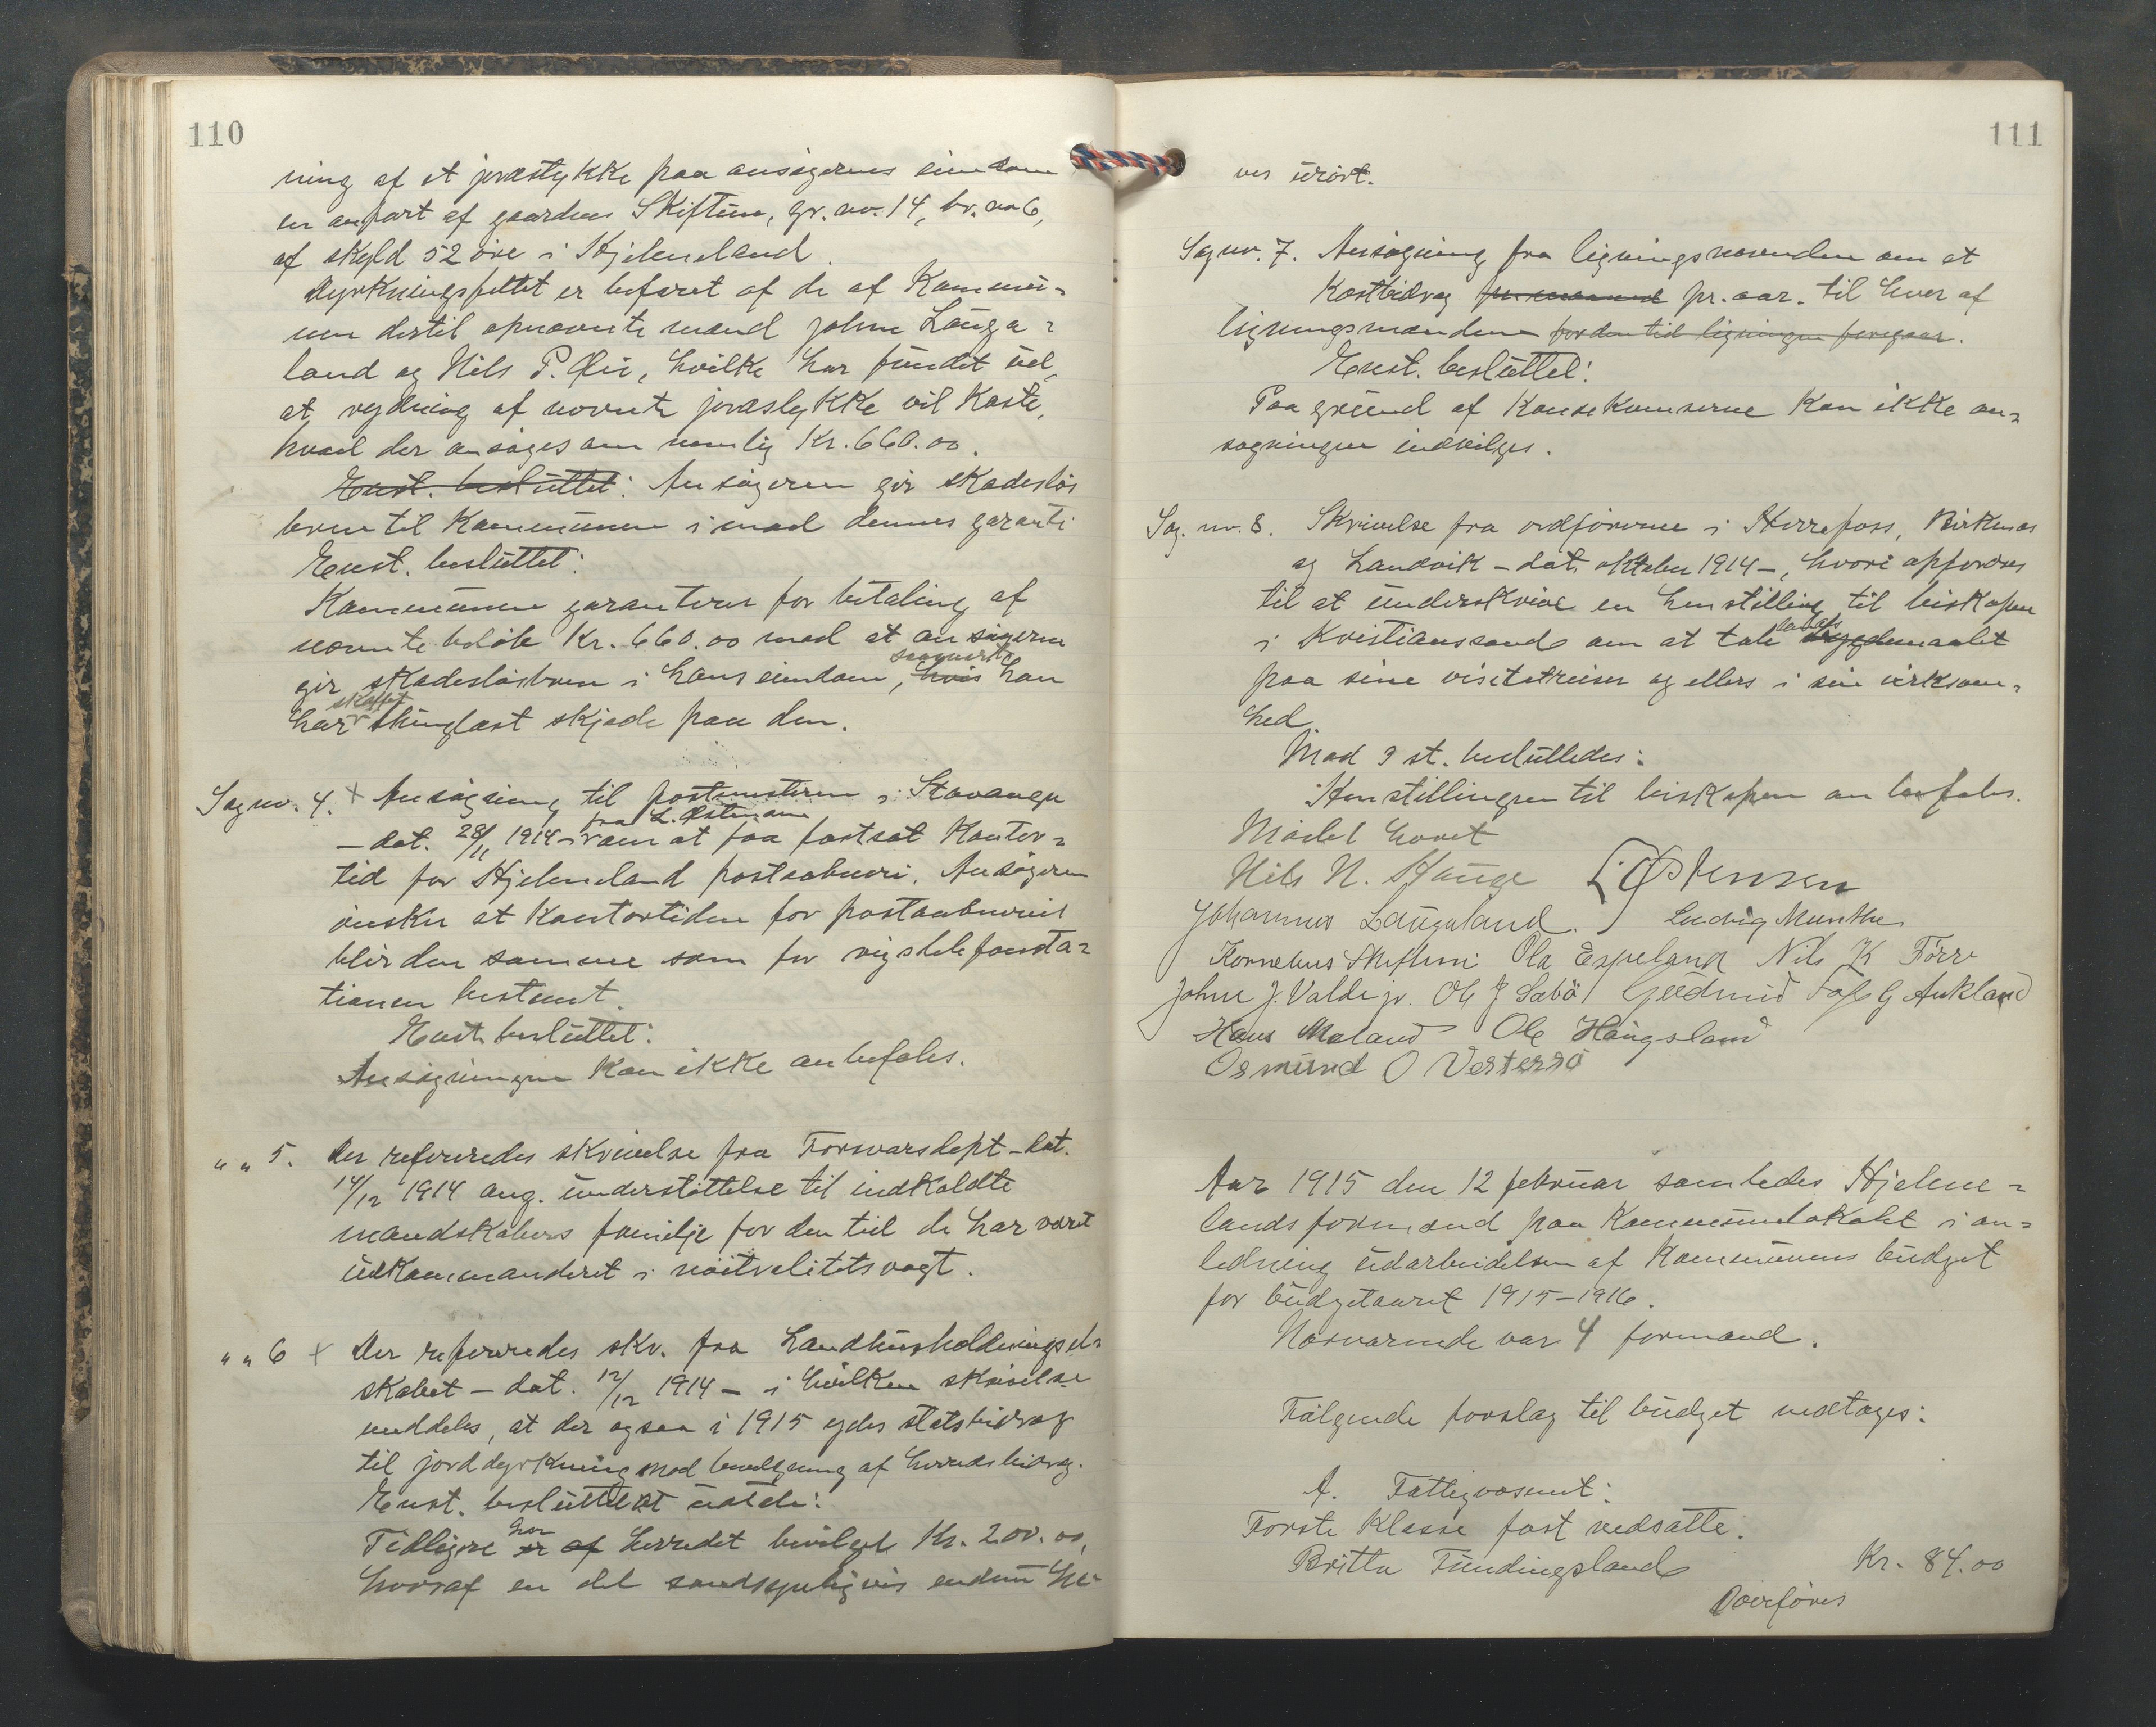 110
ning af et jordstykke paa ansøgerens eiendom
en anpart af gaarden Skiftun, gr. no. 14, br. no 6,
af skyld 52 øre i Hjelmeland.
Dyrkningsfeltet er befaret af de af Kommu-
nen dertil opnævnte mænd Johne Lauga-
land og Nils P. Øie, hvilke har fundet ud,
at rydning af nævnte jordstykke vil koste,
hvad der ansøges om nemlig Kr. 660.00.
Enst. besluttet: Ansøgeren gir skadesløs
brev til Kommunen imod dennes garanti
Enst. besluttet:
Kommunen garanterer for betaling af
nævnte beløb Kr. 660.00 mod at ansøgeren
gir skadesløsbrev i hans eiendom, hvis saasnart han
har skaffet thinglæst skjøde paa den.
Sag no. 4. + Ansøgning til postmesteren i Stavanger
fra L. Østensen
– dat. 28/11 1914 – om at faa fastsat Kontor-
tid for Hjelmeland postaabneri. Ansøgeren
ønsker at Kontortiden for postaabneriet
blir den samme som for rigstelefonsta-
tionen bestemt.
Enst. besluttet:
Ansøgningen kan ikke anbefales.
" " 5. Der refereredes skrivelse fra Forsvarsdept – dat.
14/12 1914 ang. understøttelse til indkaldte
mandskabers familje for den tid de har været
udkommanderet i nøitralitetsvagt.
" " 6 + Der refereredes skr. fra Landhusholdningsel-
skabet – dat. 12/12 1914 – i hvilken skrivelse
meddeles, at der ogsaa i 1915 ydes statsbidrag
til jorddyrkning mod bevilgning af herredsbidrag.
Enst. besluttet at uttale:
Tidligere er af har herredet bevilget Kr. 200.00,
hvoraf en del sandsynligvis endnu he-
111
ver urørt.
Sag no. 7. Ansøgning fra ligningsnævnden om et
Kostbidrag pr. maaned pr. aar. til hver af
ligningsmændene for den tid ligningen foregaar.
Enst. besluttet:
Paa grund af Konsekvenserne kan ikke an-
søgningen indvilges.
Sag. no. 8. Skrivelse fra ordførerne i Herrefoss, Birkenæs
og Landvik – dat. oktober 1914 –, hvori opfordres
til at underskrive en henstilling til biskopen
i Kristianssand om at tale landsbygdemaalet
paa sine visitatreiser og ellers i sin virksom-
hed.
Mod 3 st. besluttedes:
Henstillingen til biskopen anbefales.
Mødet hævet
Nils N. Hauge L. Østensen
Johannes Laugaland. Ludvig Munthe
Kornelius Skiftun Ola Espeland Nils K Tørre
Johne J. Valde jr. Ole J Sabø Gudmund Tofe G Aukland
Hans Meland Ole Haugsland
Osmund O Vestersø
Aar 1915 den 12 februar samledes Hjelme-
lands formænd paa Kommunelokalet i an-
ledning udarbeidelsen af Kommunens budget
for budgetaaret 1915–1916.
Nærværende var 4 formænd.
Følgende forslag til budget vedtages:
A. Fattigvæsenet:
Første Klasse fast nedsatte:
Britta Fundingsland Kr. 84.00
Overføres